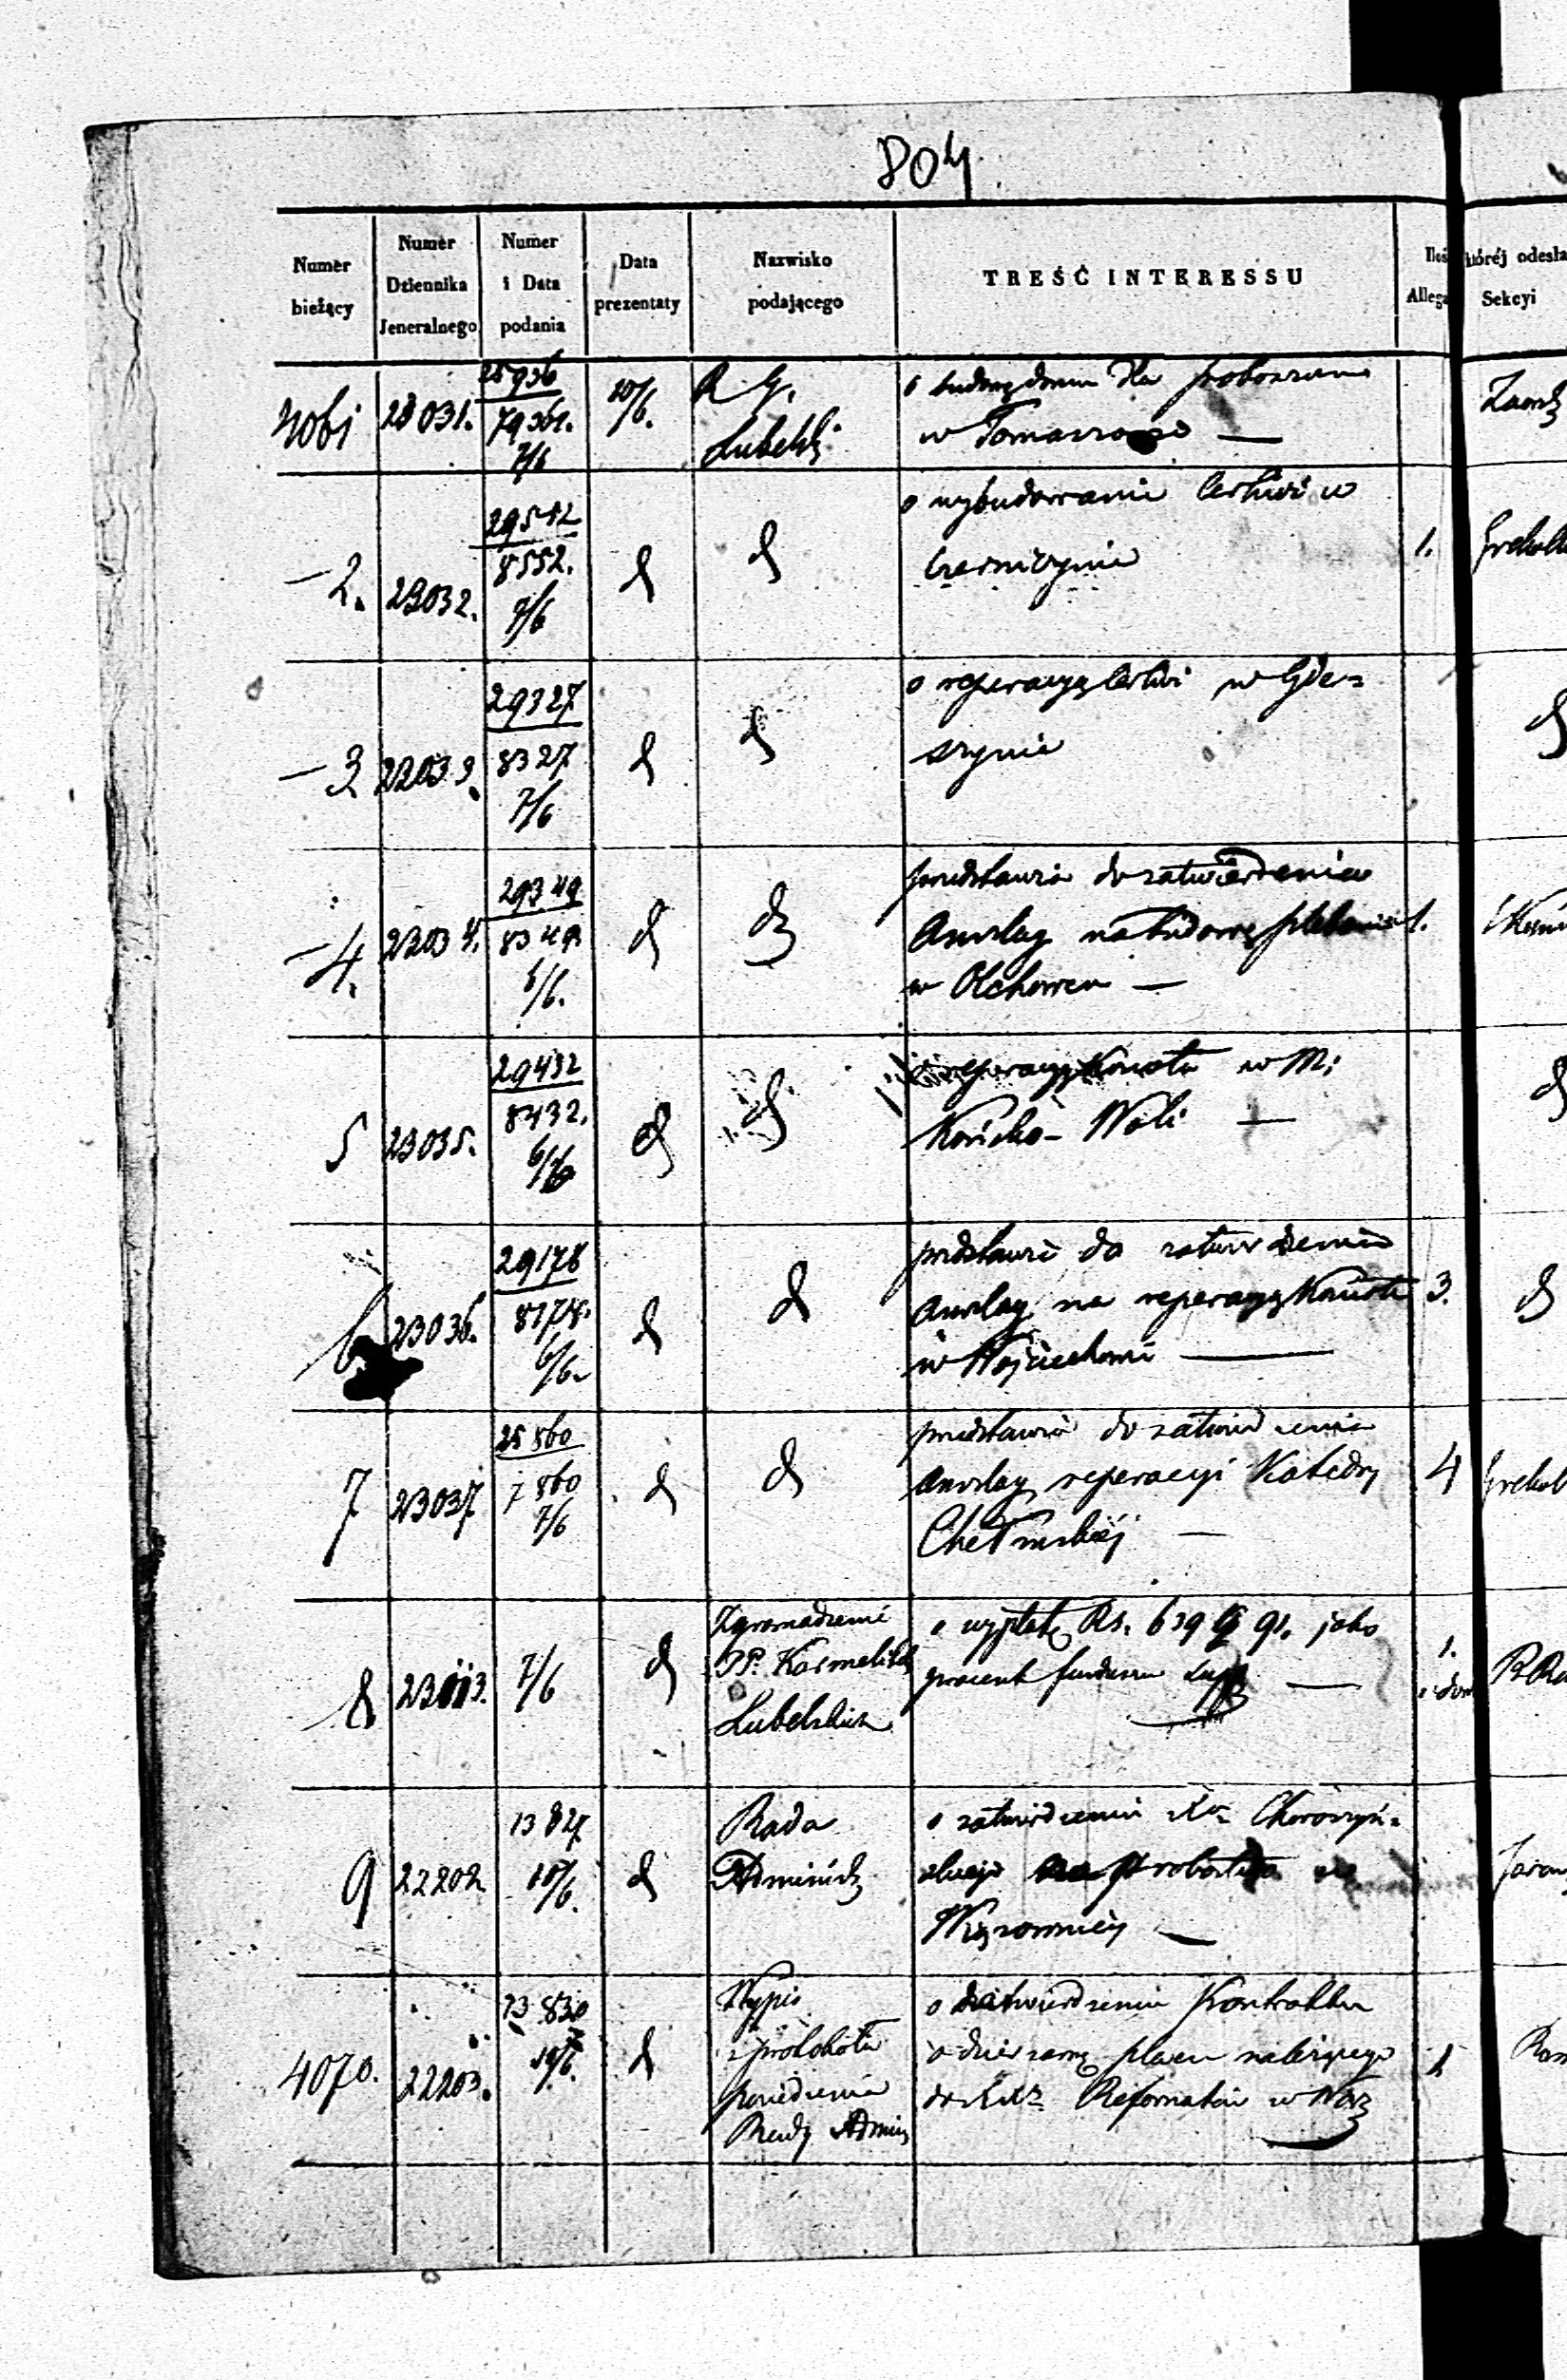 804
Numer bieżący
Numer Dziennika Jeneralnego
Numer i Data podania
Data prezentaty
Nazwisko podającego
TREŚĆ INTERESSU
Iloś Allega
której odesła Sekcyi
4061 23031. 7936 7/6 10/6. R. G. Lubelski
o budowę domu dla proboszcza
w Tomaszowie —
—2. 23032. 29542 8552. 7/6 d d
o wybudowanie Cerkwi w
Czerniczynie
1.
—3 22033 29327 8327 7/6 d d
o reperacyę Cerkwi w Gde=
szynie
d
—4. 22034. 29349 8349. 6/6. d d
przedstawia do zatwierdzenia
Anszlag na budowę plebanii
w Olchowcu —
1.
5 23035. 29432 8432. 6/6 d d
o reperacyę Kościoła w M:
Końsko-Woli —
d
6 23036. 29178 8178. 6/6. d d
przedstawia do zatwierdzenia
Anszlag na reperacyę Kościoła
w Wojciechowie —
3.
d
7 23037 7860 7/6 d d
przedstawia do zatwierdzenia
Anszlag reperacyi Katedry
Chełmskiej —
4
8 7/6 d
Zgromadzenie
PP. Karmelitek
Lubelskich
o wypłatę Rs. 639 91. jako
procent funduszu —
1.
9 22202 13827 10/6. d
Rada
Administ
o zatwierdzenie Xa Choroszyń=
skiego probostwo
Wąwolnicy —
4070. 22203. 13830 10/6. d
Wypis
z protokołu
posiedzenia
Rady Admin
o zatwierdzenie Kontraktu
o dzierżawę placu należącego
do XX Reformatów w Warz
1